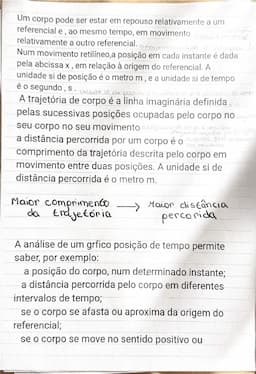 Um corpo pode ser estar em repouso relativamente a um
referencial e , ao mesmo tempo, em movimento
relativamente a outro referencial.
Num movimento retilíneo,a posição em cada instante é dada
pela abcissa x , em relação à origem do referencial. A
unidade si de posição é o metro m , e a unidade si de tempo
é o segundo , s .
A trajetória de corpo é a linha imaginária definida
pelas sucessivas posições ocupadas pelo corpo no
seu corpo no seu movimento
a distância percorrida por um corpo é o
comprimento da trajetória descrita pelo corpo em
movimento entre duas posições. A unidade si de
distância percorrida é o metro m.
Maior comprimento → Maior distância
da trajetória percorrida
A análise de um grfico posição de tempo permite
saber, por exemplo:
a posição do corpo, num determinado instante;
a distância percorrida pelo corpo em diferentes
intervalos de tempo;
se o corpo se afasta ou aproxima da origem do
referencial;
se o corpo se move no sentido positivo ou